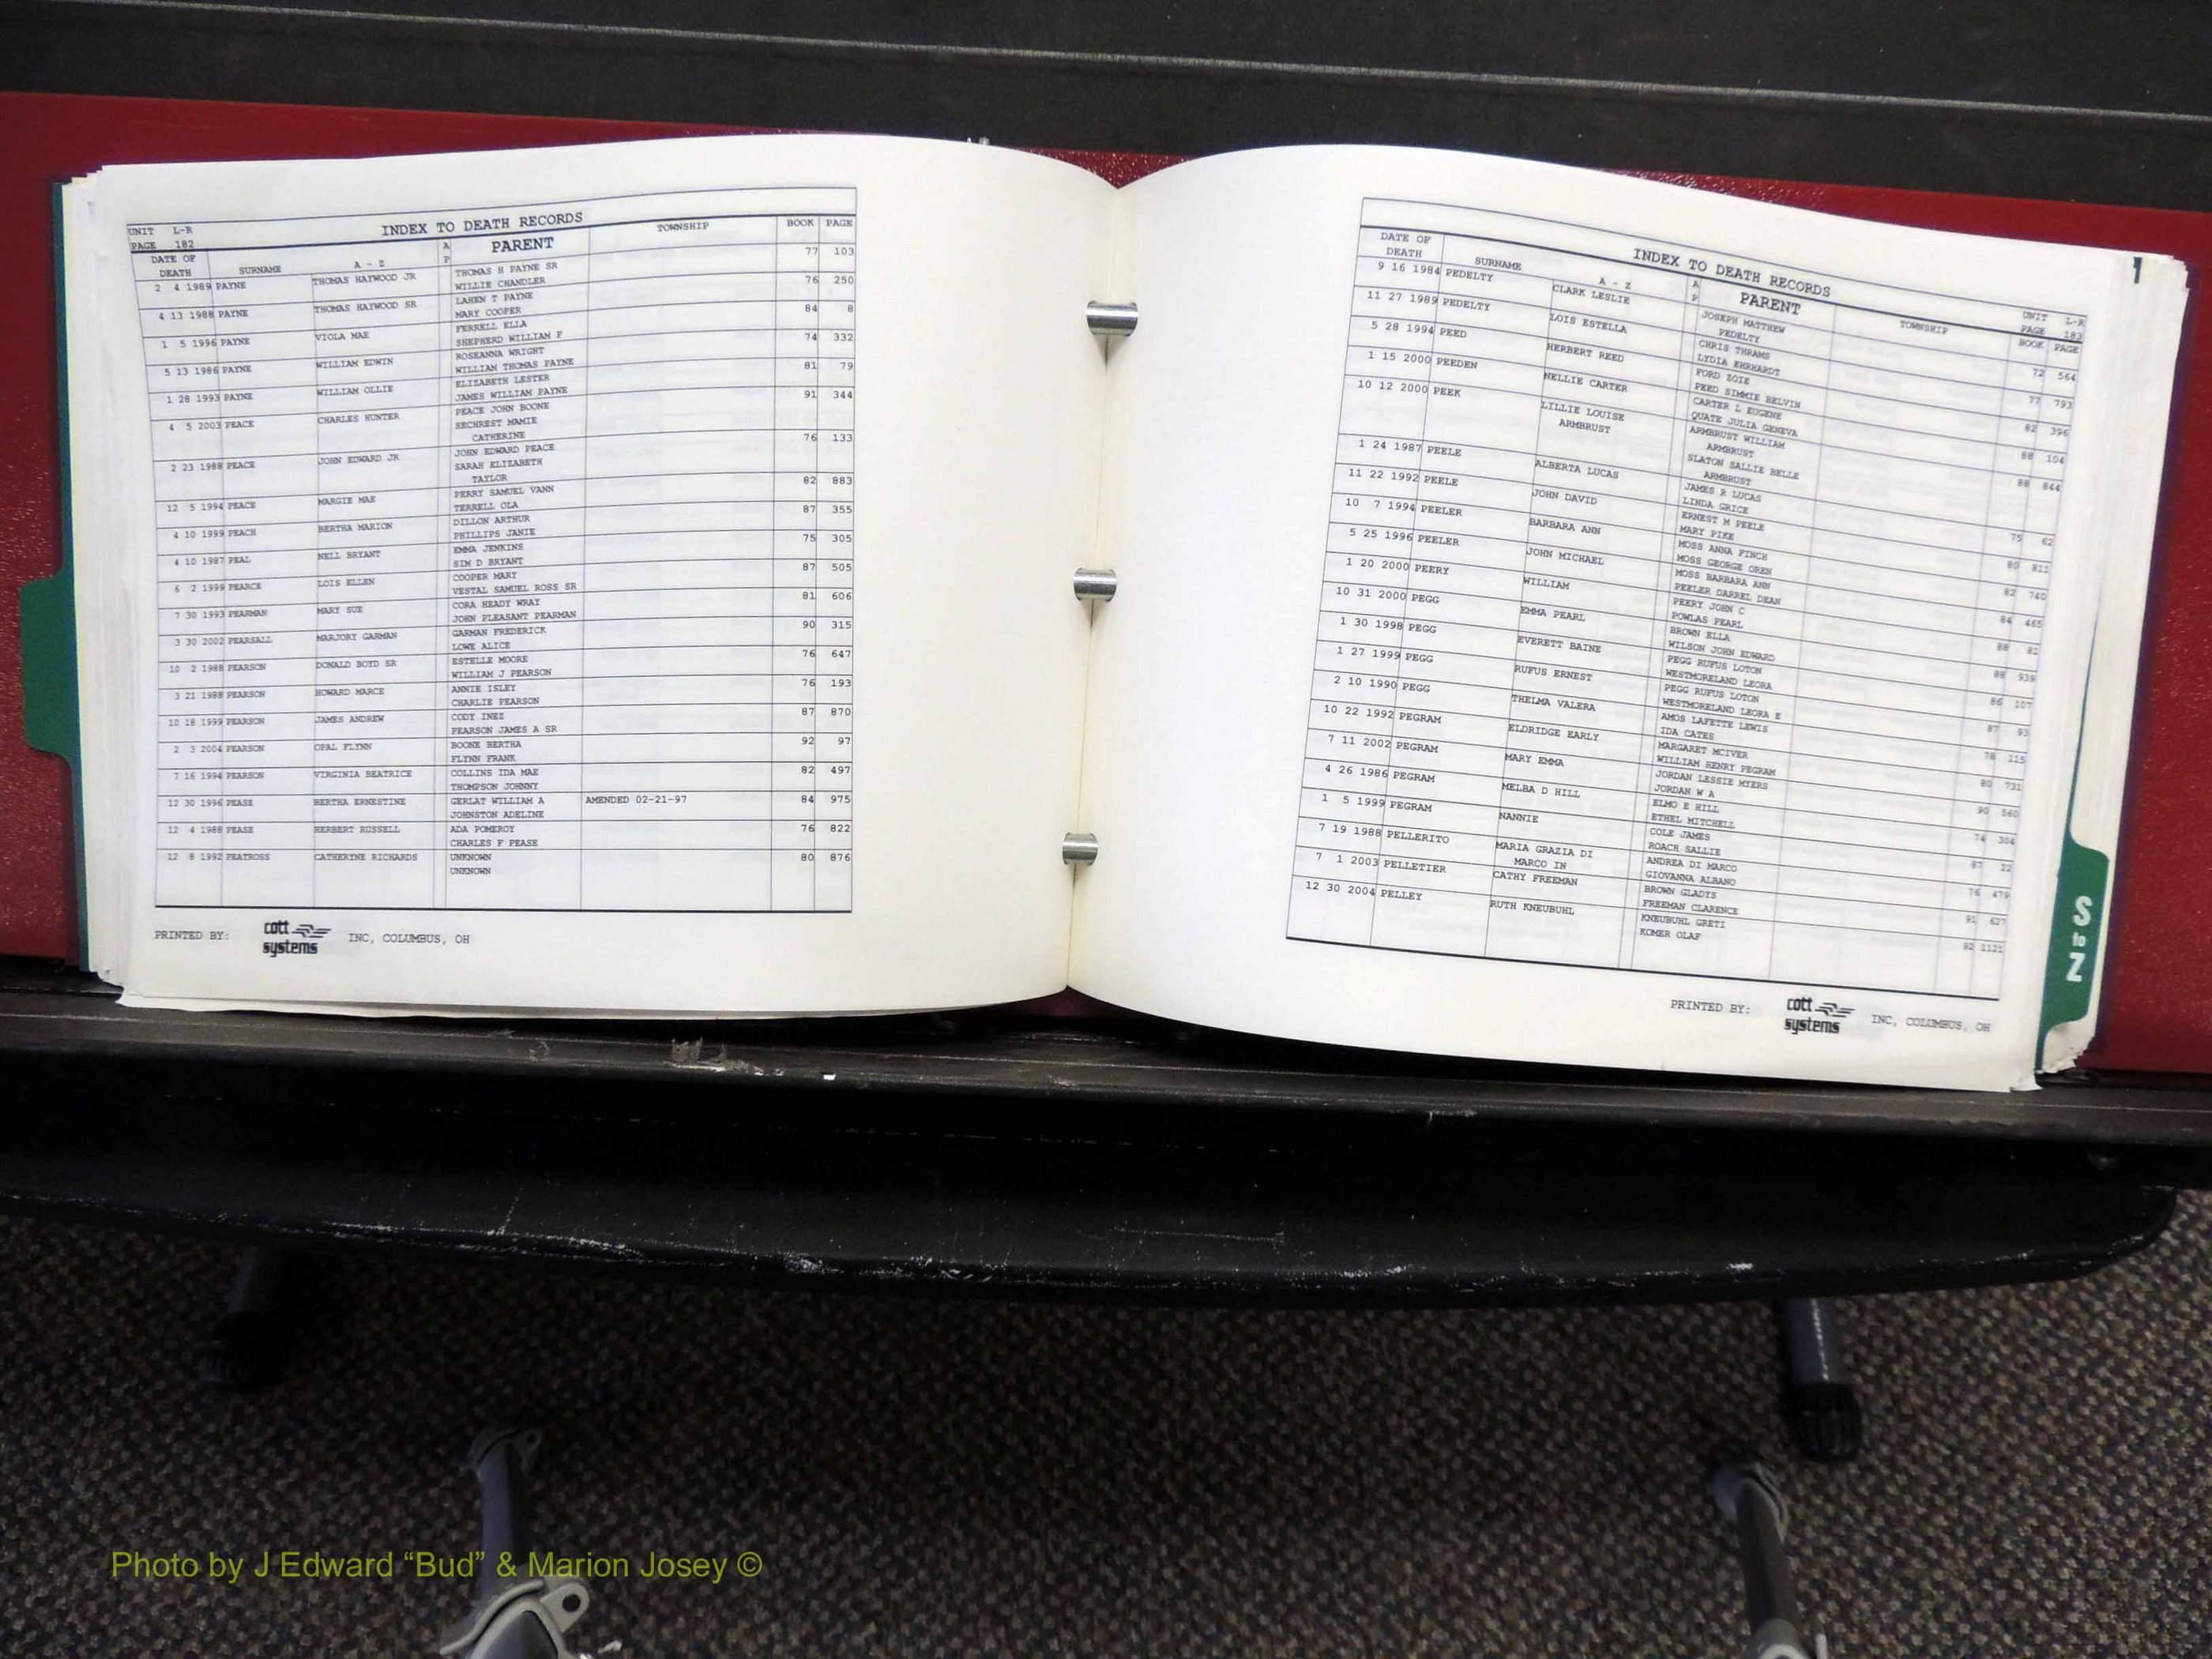 UNIT L-R
PAGE 182
INDEX TO DEATH RECORDS
DATE OF DEATH SURNAME A - Z AP PARENT TOWNSHIP BOOK PAGE
2 4 1989 PAYNE THOMAS HAYWOOD JR THOMAS H PAYNE SR 77 103
WILLIE CHANDLER
4 13 1988 PAYNE THOMAS HAYWOOD SR LAHEN T PAYNE 76 250
MARY COOPER
1 5 1996 PAYNE VIOLA MAE FERRELL ELLA 84 8
SHEPHERD WILLIAM F
5 13 1986 PAYNE WILLIAM EDWIN ROSEANNA WRIGHT 74 332
WILLIAM THOMAS PAYNE
1 28 1993 PAYNE WILLIAM OLLIE ELIZABETH LESTER 81 79
JAMES WILLIAM PAYNE
4 5 2003 PEACE CHARLES HUNTER PEACE JOHN BOONE 91 344
SECHREST MAMIE
CATHERINE
2 23 1988 PEACE JOHN EDWARD JR JOHN EDWARD PEACE 76 133
SARAH ELIZABETH
TAYLOR
12 5 1994 PEACE MARGIE MAE PERRY SAMUEL VANN 82 883
TERRELL OLA
4 10 1999 PEACH BERTHA MARION DILLON ARTHUR 87 355
PHILLIPS JANIE
4 10 1987 PEAL NELL BRYANT EMMA JENKINS 75 305
SIM D BRYANT
6 2 1999 PEARCE LOIS ELLEN COOPER MARY 87 505
VESTAL SAMUEL ROSS SR
7 30 1993 PEARMAN MARY SUE CORA HEADY WRAY 81 606
JOHN PLEASANT PEARMAN
3 30 2002 PEARSALL MARJORY GARMAN GARMAN FREDERICK 90 315
LOWE ALICE
10 2 1988 PEARSON DONALD BOYD SR ESTELLE MOORE 76 647
WILLIAM J PEARSON
3 21 1988 PEARSON HOWARD MARCE ANNIE ISLEY 76 193
CHARLIE PEARSON
10 18 1999 PEARSON JAMES ANDREW CODY INEZ 87 870
PEARSON JAMES A SR
2 3 2004 PEARSON OPAL FLYNN BOONE BERTHA 92 97
FLYNN FRANK
7 16 1994 PEARSON VIRGINIA BEATRICE COLLINS IDA MAE 82 497
THOMPSON JOHNNY
12 30 1996 PEASE BERTHA ERNESTINE GERLAT WILLIAM A AMENDED 02-21-97 84 975
JOHNSTON ADELINE
12 4 1988 PEASE HERBERT RUSSELL ADA POMEROY 76 822
CHARLES F PEASE
12 8 1992 PEATROSS CATHERYNE RICHARDS UNKNOWN 80 876
UNKNOWN
PRINTED BY: cott systems INC, COLUMBUS, OH
INDEX TO DEATH RECORDS
UNIT L-R
PAGE 183
DATE OF DEATH SURNAME A - Z AP PARENT TOWNSHIP BOOK PAGE
9 16 1984 PEDELTY CLARK LESLIE JOSEPH MATTHEW 72 564
PEDELTY
11 27 1989 PEDELTY LOIS ESTELLA CHRIS THRAMS 77 793
LYDIA EHRHARDT
5 28 1994 PEED HERBERT REED FORD ZOIE 82 396
PEED SIMMIE BELVIN
1 15 2000 PEEDEN NELLIE CARTER CARTER L EUGENE 88 104
QUATE JULIA GENEVA
10 12 2000 PEEK LILLIE LOUISE ARMBRUST WILLIAM 88 844
ARMBRUST ARMBRUST
SLATON SALLIE BELLE
ARMBRUST
1 24 1987 PEELE ALBERTA LUCAS JAMES R LUCAS 75 62
LINDA GRICE
11 22 1992 PEELE JOHN DAVID ERNEST M PEELE 80 811
MARY PIKE
10 7 1994 PEELER BARBARA ANN MOSS ANNA FINCH 82 740
MOSS GEORGE OREN
5 25 1996 PEELER JOHN MICHAEL MOSS BARBARA ANN 84 465
PEELER DARREL DEAN
1 20 2000 PEERY WILLIAM PEERY JOHN C 88 81
POWLAS PEARL
10 31 2000 PEGG EMMA PEARL BROWN ELLA 88 939
WILSON JOHN EDWARD
1 30 1998 PEGG EVERETT BAINE PEGG RUFUS LOTON 86 107
WESTMORELAND LEORA
1 27 1999 PEGG RUFUS ERNEST PEGG RUFUS LOTON 87 93
WESTMORELAND LEORA E
2 10 1990 PEGG THELMA VALERA AMOS LAFETTE LEWIS 78 115
IDA CATES
10 22 1992 PEGRAM ELDRIDGE EARLY MARGARET MCIVER 80 731
WILLIAM HENRY PEGRAM
7 11 2002 PEGRAM MARY EMMA JORDAN LESSIE MYERS 90 560
JORDAN W A
4 26 1986 PEGRAM MELBA D HILL ELMO E HILL 74 304
ETHEL MITCHELL
1 5 1999 PEGRAM NANNIE COLE JAMES 87 22
ROACH SALLIE
7 19 1988 PELLERITO MARIA GRAZIA DI ANDREA DI MARCO 76 479
MARCO IN GIOVANNA ALBANO
7 1 2003 PELLETIER CATHY FREEMAN BROWN GLADYS 91 627
FREEMAN CLARENCE
12 30 2004 PELLEY RUTH KNEUBUHL KNEUBUHL GRETI 92 1121
KOMER OLAF
PRINTED BY: cott systems INC, COLUMBUS, OH
S
to
Z
Photo by J Edward “Bud” & Marion Josey ©